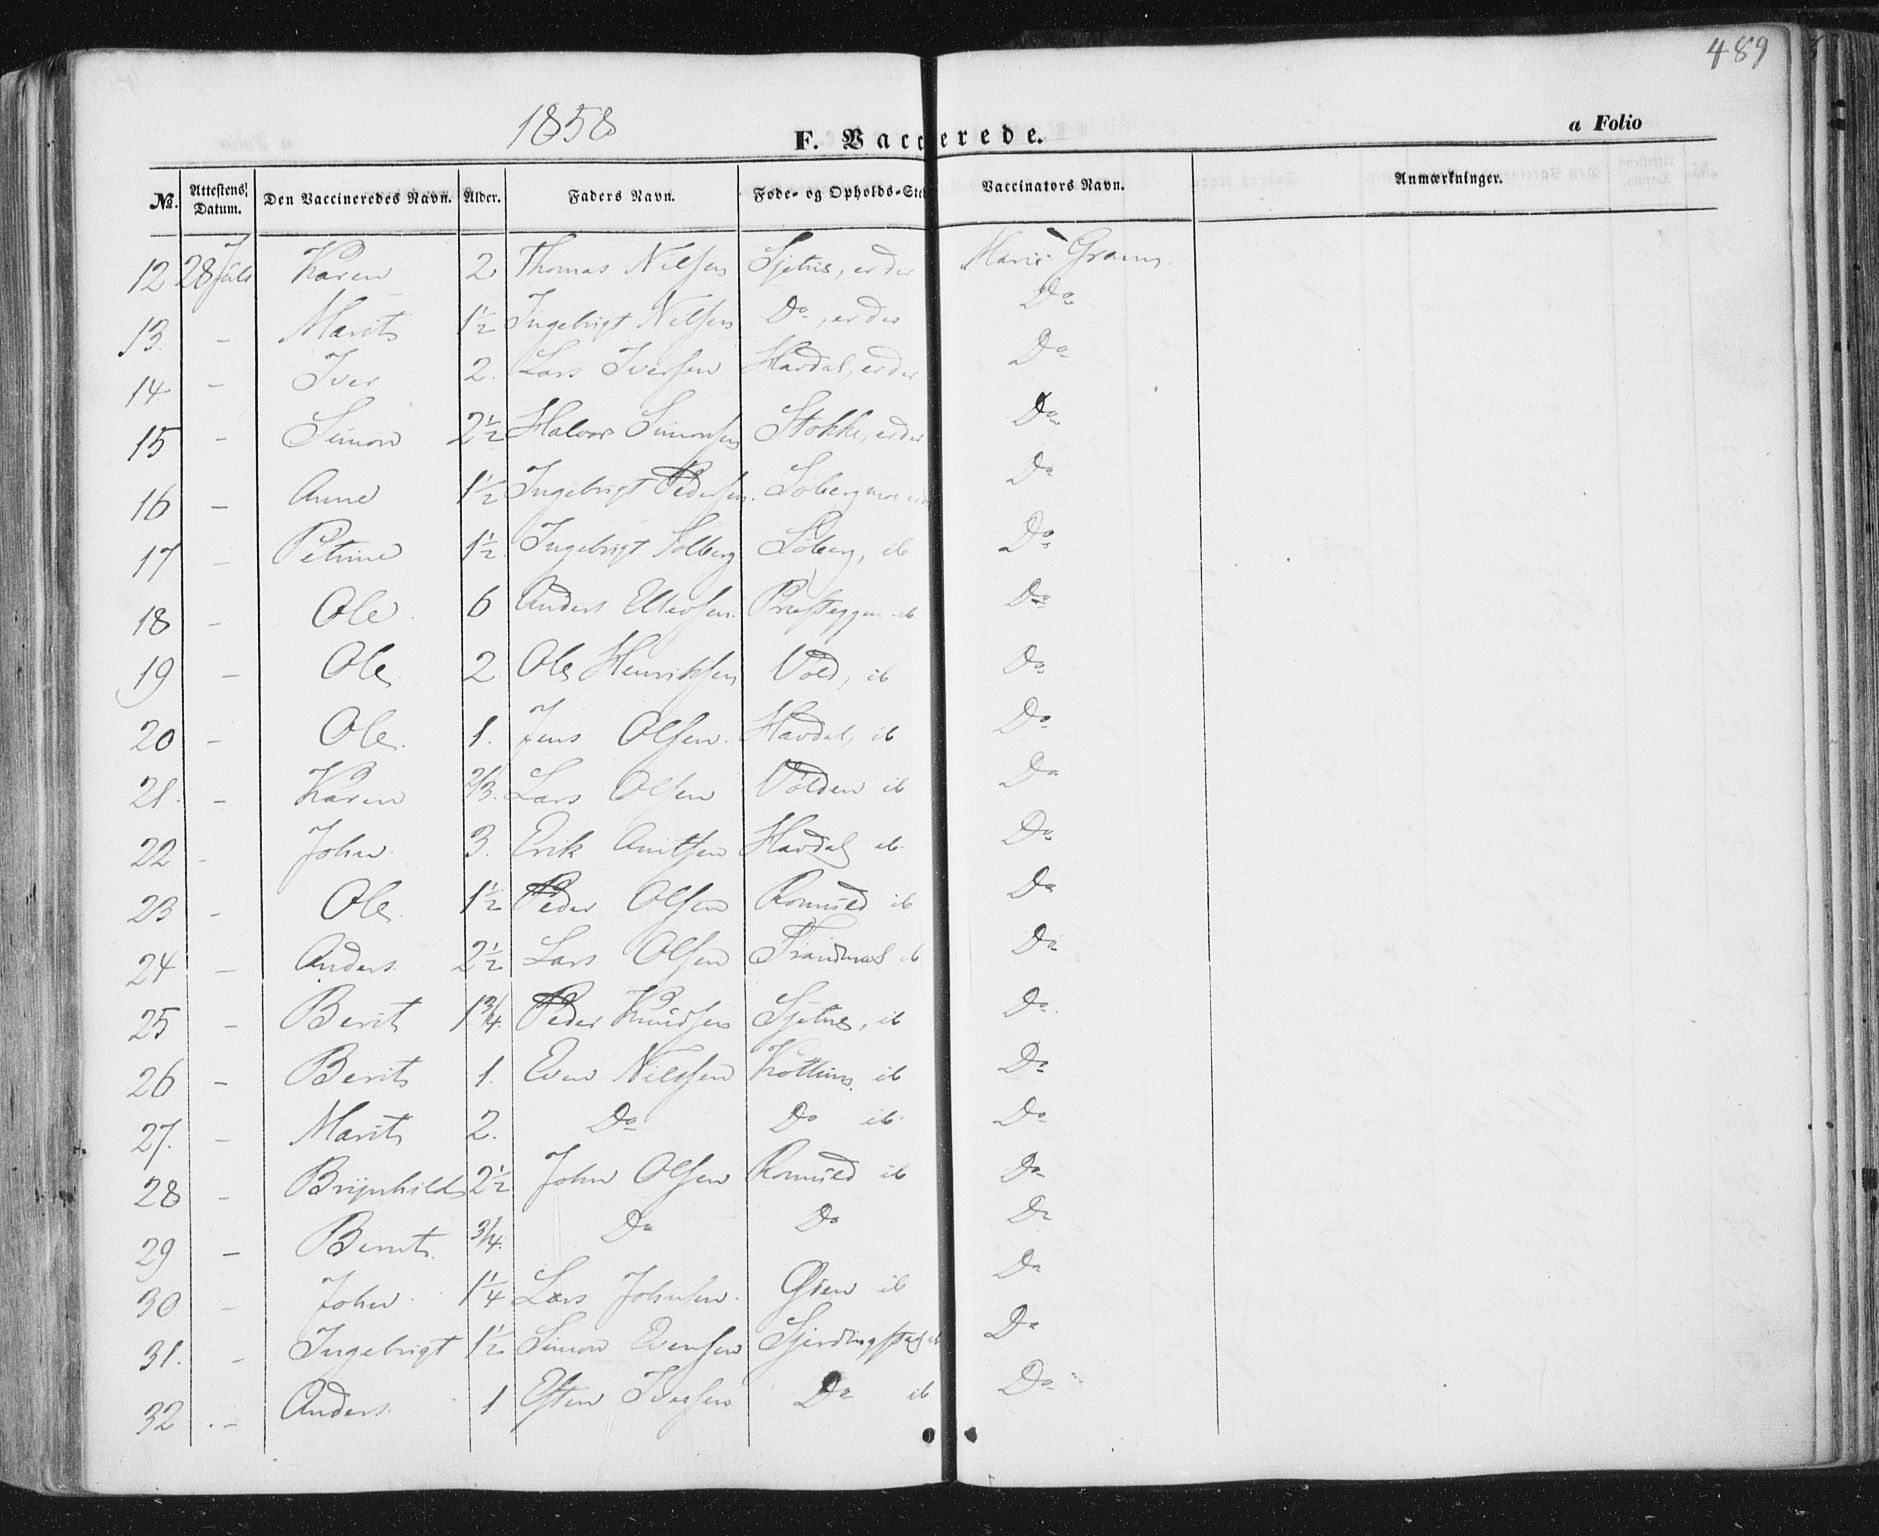 489
1858
F. Vaccinerede.
a Folio
No. Attestens Datum. Den Vaccineredes Navn. Alder. Faders Navn. Føde- og Opholds-Sted Vaccinators Navn. Anmærkninger.
12 28 Juli Karen 2 Thomas Nilsen Sjetne, Marie Gramm
13. - Marit 1½ Ingebrigt Nilsen Do, Do
14 - Iver 2. Lars Iversen Havdal, Do
15 - Simon 2½ Halvor Simonsen Stokke, Do
16 - Anne 1½ Ingebrigt Pedersen. Søbergmo Do
17 - Petrine 1½ Ingebrigt Solberg Søberg, ib Do
18 - Ole 6 Anders Ellevsen. Præsteggen ib Do
19 - Ole 2. Ole Henriksen Vold, ib Do
20 - Ole 1. Jens Olsen. Havdal, ib Do
21. - Karen 2/3. Lars Olsen Volden ib Do
22 - John 3. Erik Havdal ib Do
23 - Ole 1½ Peder Olsen Romuld ib Do
24 - Anders 2½ Lars Olsen ib Do
25 - Berit 1¾ Peder Knudsen Sjetne, ib Do
26 - Berit 1. Even Nilssen ib Do
27. - Marit 2. Do Do ib Do
28 - Brynhild 2½ John Olsen Romuld ib Do
29 - Berit ¾. Do Do Do
30 - John 1¼ Lars Johnsen. Øien ib Do
31. - Ingebrigt 1½ Simon Evensen ib Do
32 - Anders 1 Esten Iversen Do ib Do